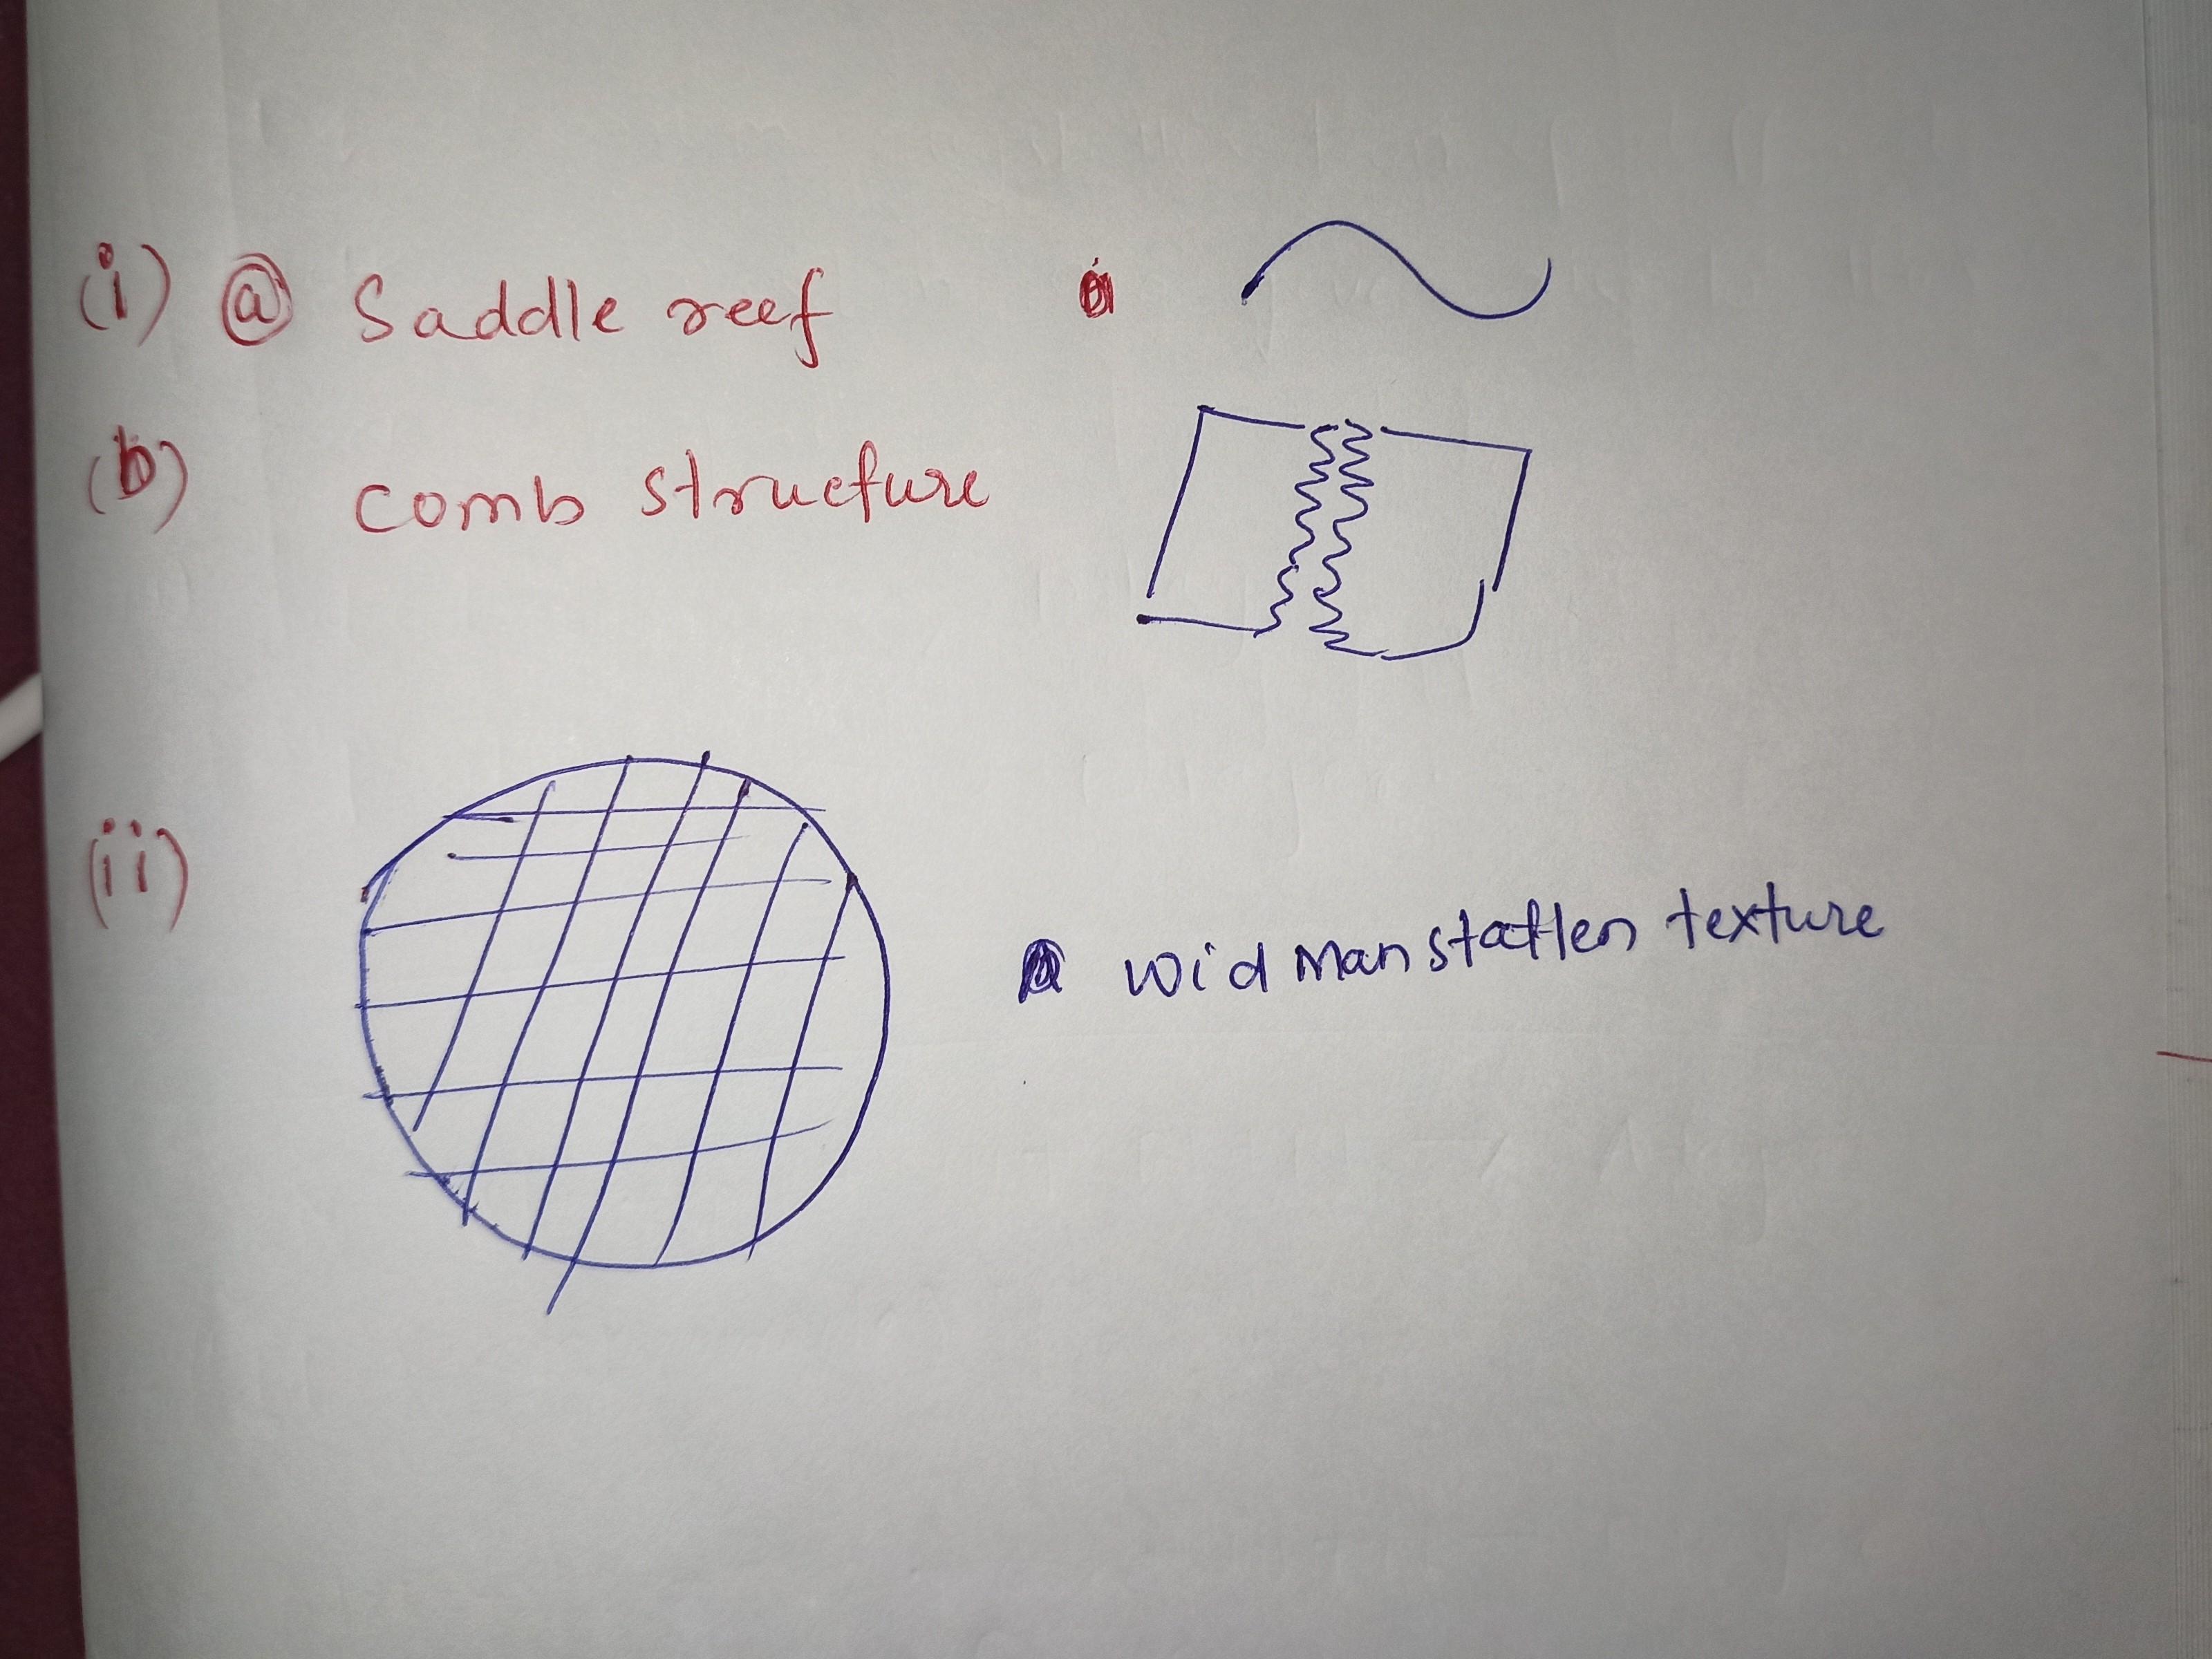 (i) (a) Saddle reef
(b) comb structure
(ii)
widmanstatten texture